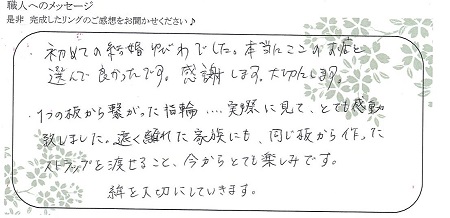 職人へのメッセージ
是非 完成したリングのご感想をお聞かせください♪
初めての結婚ゆびわでした。本当にここのお店を
選んで良かったです。感謝します。大切にします。
1つの板から繋がった指輪…‥実際に見て、とても感動
致しました。遠く離れた家族にも、同じ板から作った
ストラップを渡せること、今からとても楽しみです。
絆を大切にしていきます。